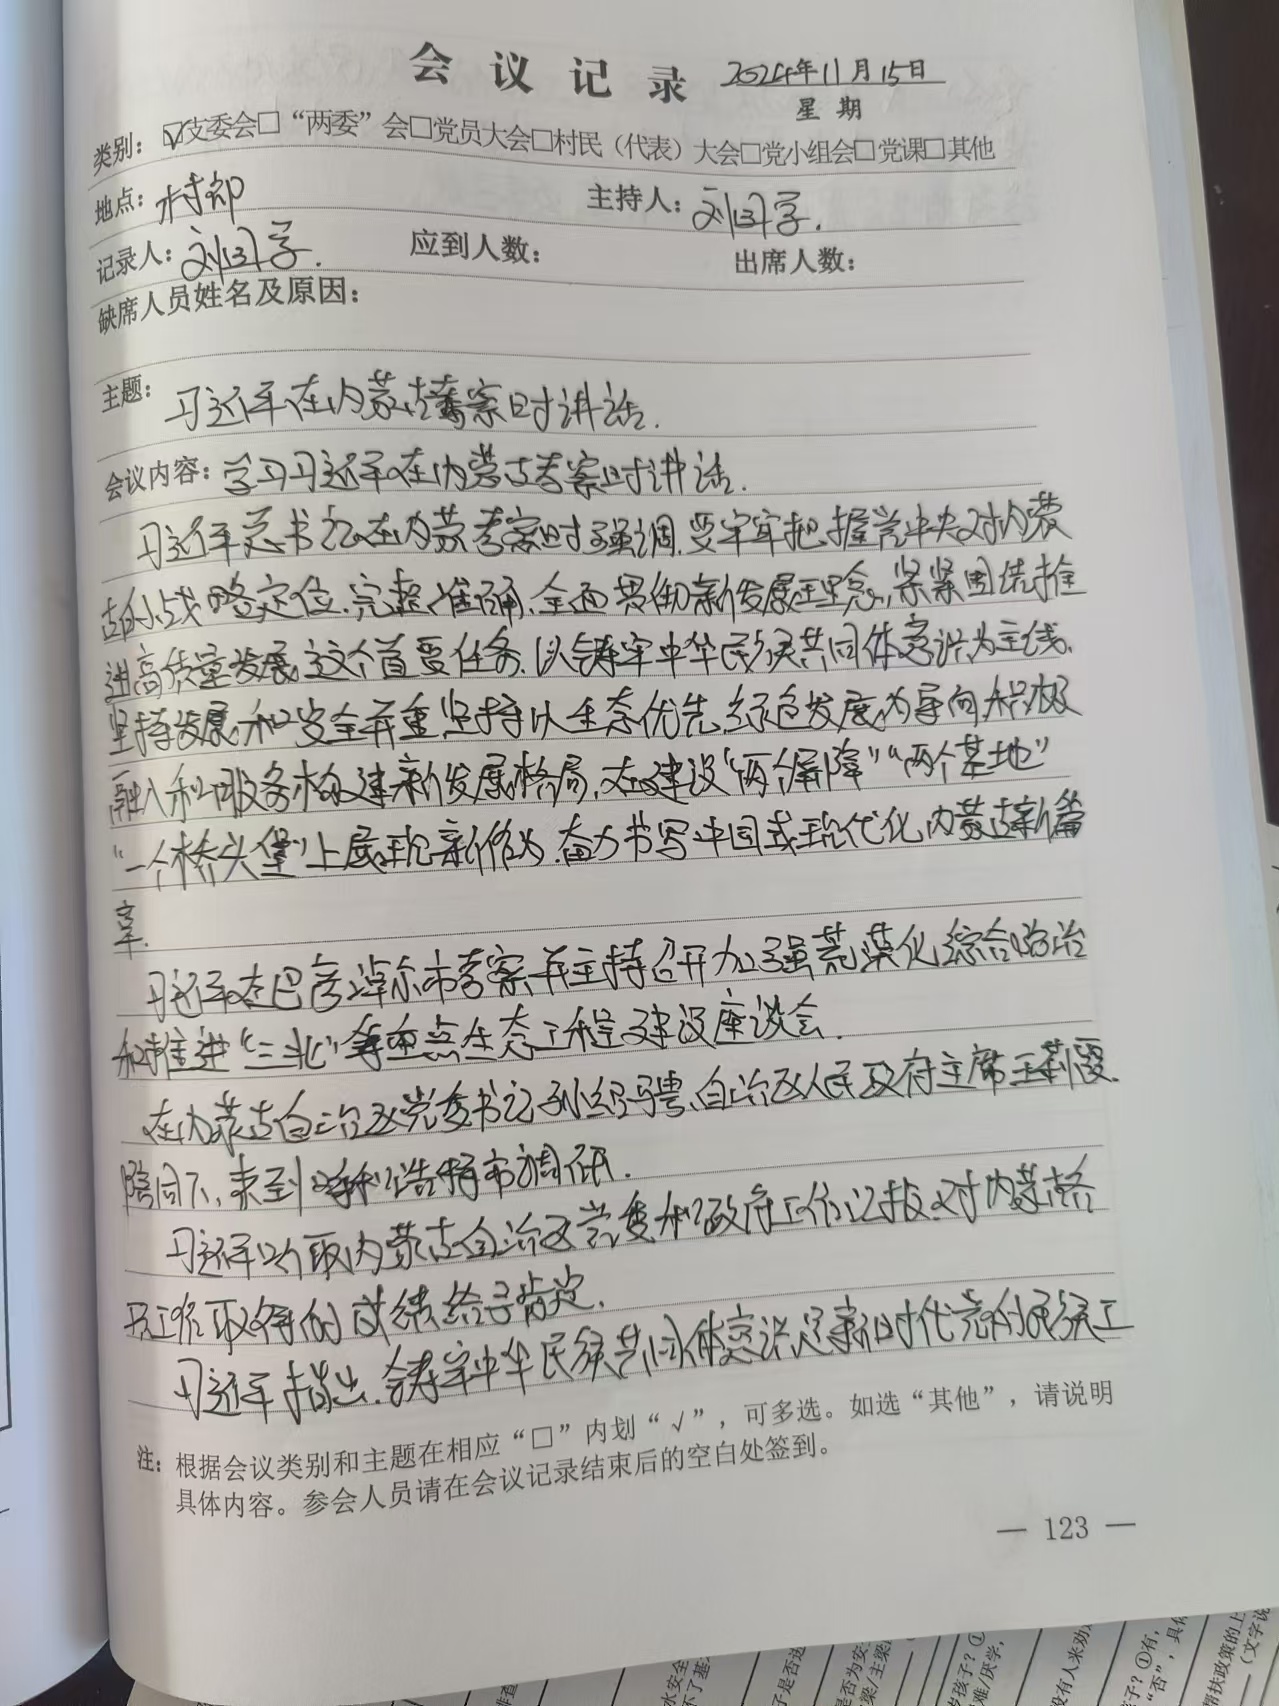 会议记录 2024年11月15日
星期
类别：☑支委会□“两委”会□党员大会□村民（代表）大会□党小组会□党课□其他
地点：村部 主持人：刘学.
记录人：刘学. 应到人数： 出席人数：
缺席人员姓名及原因：
主题：习近平在内蒙古考察时讲话.
会议内容：学习习近平在内蒙古考察时讲话.
习近平总书记在内蒙考察时强调.要牢牢把握党中央对内蒙
古的战略定位.完整、准确、全面贯彻新发展理念,紧紧围绕推
进高质量发展这个首要任务.以铸牢中华民族共同体意识为主线.
坚持发展和安全并重,坚持以生态优先、绿色发展为导向,积极
融入和服务构建新发展格局,在建设“两个屏障”“两个基地”
“一个桥头堡”上展现新作为.奋力书写中国式现代化内蒙古新篇
章.
习近平在巴彦淖尔市考察,并主持召开加强荒漠化综合防治
和推进“三北”等重点生态工程建设座谈会.
在内蒙古自治区党委书记孙绍骋、自治区人民政府主席王莉霞
陪同下,来到呼和浩特市调研.
习近平听取内蒙古自治区党委和政府工作汇报,对内蒙古各
项工作取得的成绩给予肯定.
习近平指出.铸牢中华民族共同体意识是新时代党的民族工
注：根据会议类别和主题在相应“□”内划“√”，可多选。如选“其他”，请说明
具体内容。参会人员请在会议记录结束后的空白处签到。
— 123 —